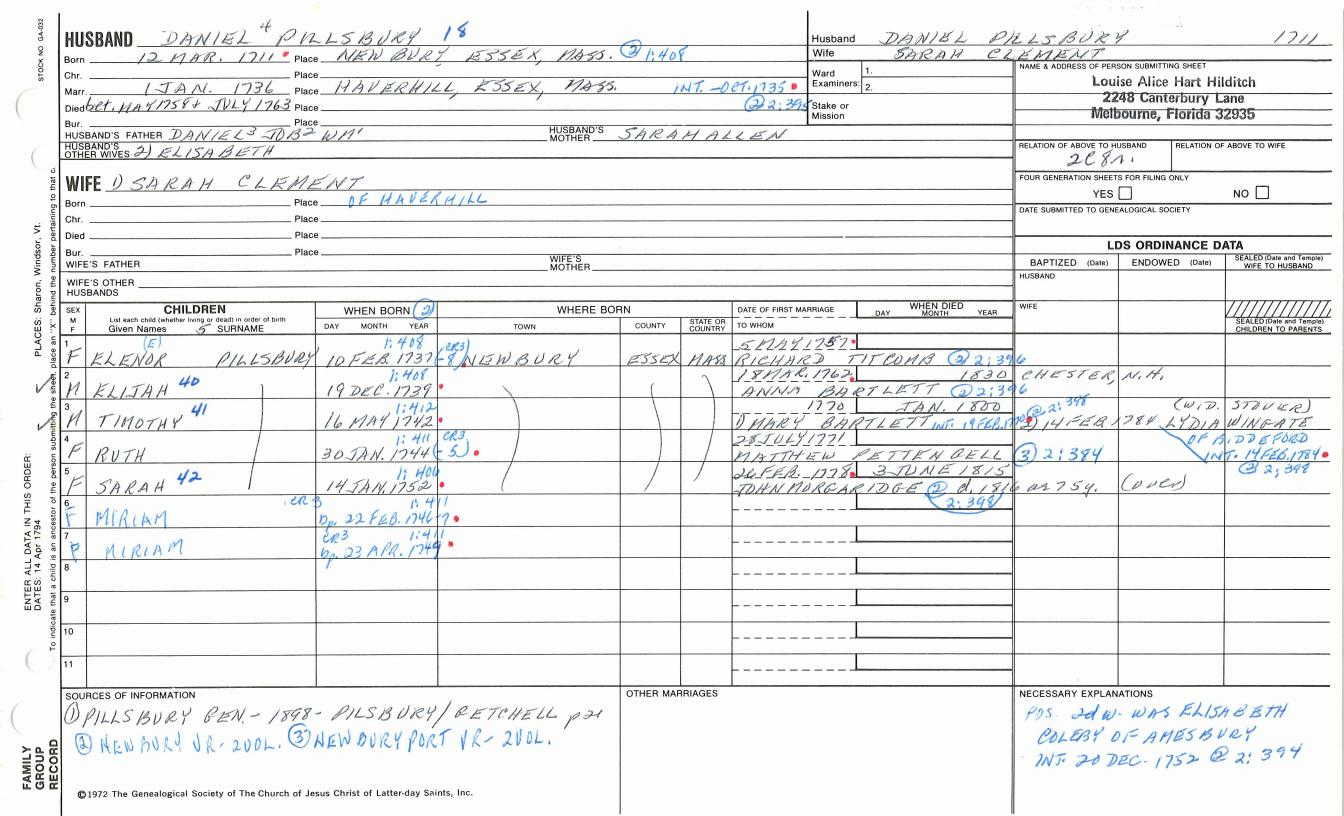 STOCK NO. GA-032
HUSBAND DANIEL 4 PILLSBURY 18
Born 12 MAR. 1711 Place NEWBURY, ESSEX, MASS. ② 1:408
Chr. Place
Marr. 1 JAN. 1736 Place HAVERHILL, ESSEX, MASS. INT. -OCT. 1735
Died bet. MAY 1759 + JULY 1763 Place ② 2:395
Bur. Place
HUSBAND'S FATHER DANIEL3 JOB2 WM1 HUSBAND'S MOTHER SARAH ALLEN
HUSBAND'S OTHER WIVES 2) ELISABETH
Husband DANIEL PILLSBURY 1711
Wife SARAH CLEMENT
Ward Examiners: 1.
2.
Stake or Mission
NAME & ADDRESS OF PERSON SUBMITTING SHEET
Louise Alice Hart Hilditch
2248 Canterbury Lane
Melbourne, Florida 32935
RELATION OF ABOVE TO HUSBAND RELATION OF ABOVE TO WIFE
2C8r.
FOUR GENERATION SHEETS FOR FILING ONLY
YES NO
DATE SUBMITTED TO GENEALOGICAL SOCIETY
WIFE 1) SARAH CLEMENT
Born Place OF HAVERHILL
Chr. Place
Died Place
Bur. Place
WIFE'S FATHER WIFE'S MOTHER
WIFE'S OTHER HUSBANDS
LDS ORDINANCE DATA
BAPTIZED (Date) ENDOWED (Date) SEALED (Date and Temple) WIFE TO HUSBAND
HUSBAND
WIFE
SEALED (Date and Temple) CHILDREN TO PARENTS
SEX M F
CHILDREN
List each child (whether living or dead) in order of birth
Given Names 5 SURNAME
WHEN BORN ②
DAY MONTH YEAR
WHERE BORN
TOWN COUNTY STATE OR COUNTRY
DATE OF FIRST MARRIAGE
TO WHOM
WHEN DIED
DAY MONTH YEAR
1 (E) 1:408 (CR3) 5 MAY 1757
F ELENOR PILLSBURY 10 FEB. 1737 (-8) NEWBURY ESSEX MASS RICHARD TITCOMB ② 2:396
2 1:408 18 MAR. 1762 1830 CHESTER, N.H.
M ELIJAH 40 19 DEC. 1739 ANNA BARTLETT ② 2:396
3 1:412 1770 JAN. 1800 ② 2:398 (WID. STOVER)
M TIMOTHY 41 16 MAY 1742 1) MARY BARTLETT INT. 19 FEB. 2) 14 FEB 1784 LYDIA WINGATE
4 1:411 CR3 28 JULY 1771 OF BIDDEFORD
F RUTH 30 JAN. 1744 (-5) MATTHEW PETTENGELL ③ 2:384 INT. 14 FEB. 1784
5 26 FEB. 1778 3 JUNE 1815 ② 2:398
F SARAH 42 14 JAN. 1752 JOHN MORGARIDGE ② d. 1816 ae 75y. (OVER)
6 CR3 1:411 2:398
F MIRIAM bp. 22 FEB. 1746-7
7 CR3 1:411
F MIRIAM bp. 23 APR. 1749
8
9
10
11
SOURCES OF INFORMATION
① PILLSBURY GEN. - 1898 - PILSBURY/GETCHELL p 21
② NEWBURY VR - 2 VOL. ③ NEWBURYPORT VR - 2 VOL.
©1972 The Genealogical Society of The Church of Jesus Christ of Latter-day Saints, Inc.
OTHER MARRIAGES
NECESSARY EXPLANATIONS
POS. 2d W. WAS ELISABETH
COLEBY OF AMESBURY
INT. 20 DEC. 1752 ② 2:394
ENTER ALL DATA IN THIS ORDER:
DATES: 14 Apr 1794
PLACES: Sharon, Windsor, Vt.
To indicate that a child is an ancestor of the person submitting the sheet, place an "X" behind the number pertaining to that c.
FAMILY
GROUP
RECORD